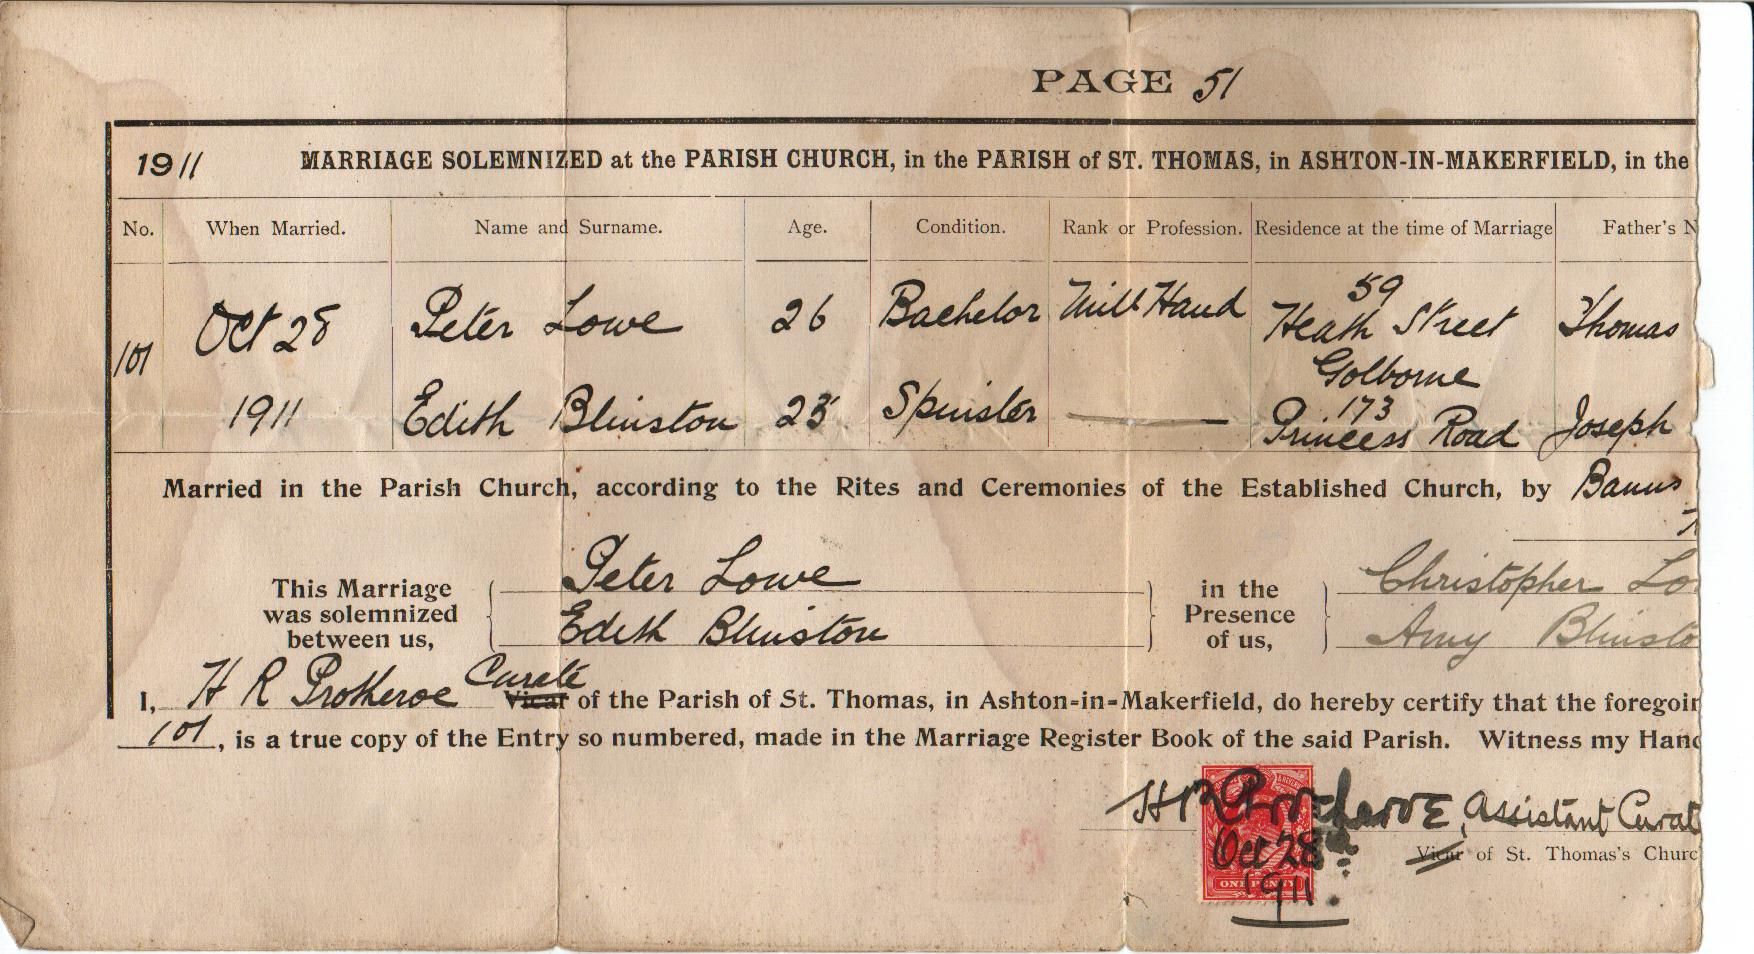 PAGE 51
1911 MARRIAGE SOLEMNIZED at the PARISH CHURCH, in the PARISH of ST. THOMAS, in ASHTON-IN-MAKERFIELD, in the
No. When Married. Name and Surname. Age. Condition. Rank or Profession. Residence at the time of Marriage Father's N
59
Oct 28 Peter Lowe 26 Bachelor Mill Hand Heath Street Thomas
101 Golborne
1911 Edith Blinston 23 Spinster 173
Princess Road Joseph
Married in the Parish Church, according to the Rites and Ceremonies of the Established Church, by Banns
This Marriage was solemnized between us, Peter Lowe in the Presence of us, Christopher Lo
Edith Blinston Amy Blinsto
I, H R Protheroe Curate Vicar of the Parish of St. Thomas, in Ashton-in-Makerfield, do hereby certify that the foregoin
101, is a true copy of the Entry so numbered, made in the Marriage Register Book of the said Parish. Witness my Hand
H R Protheroe, Assistant Curat
Oct 28th Vicar of St. Thomas's Churc
ONE PENNY
1911.